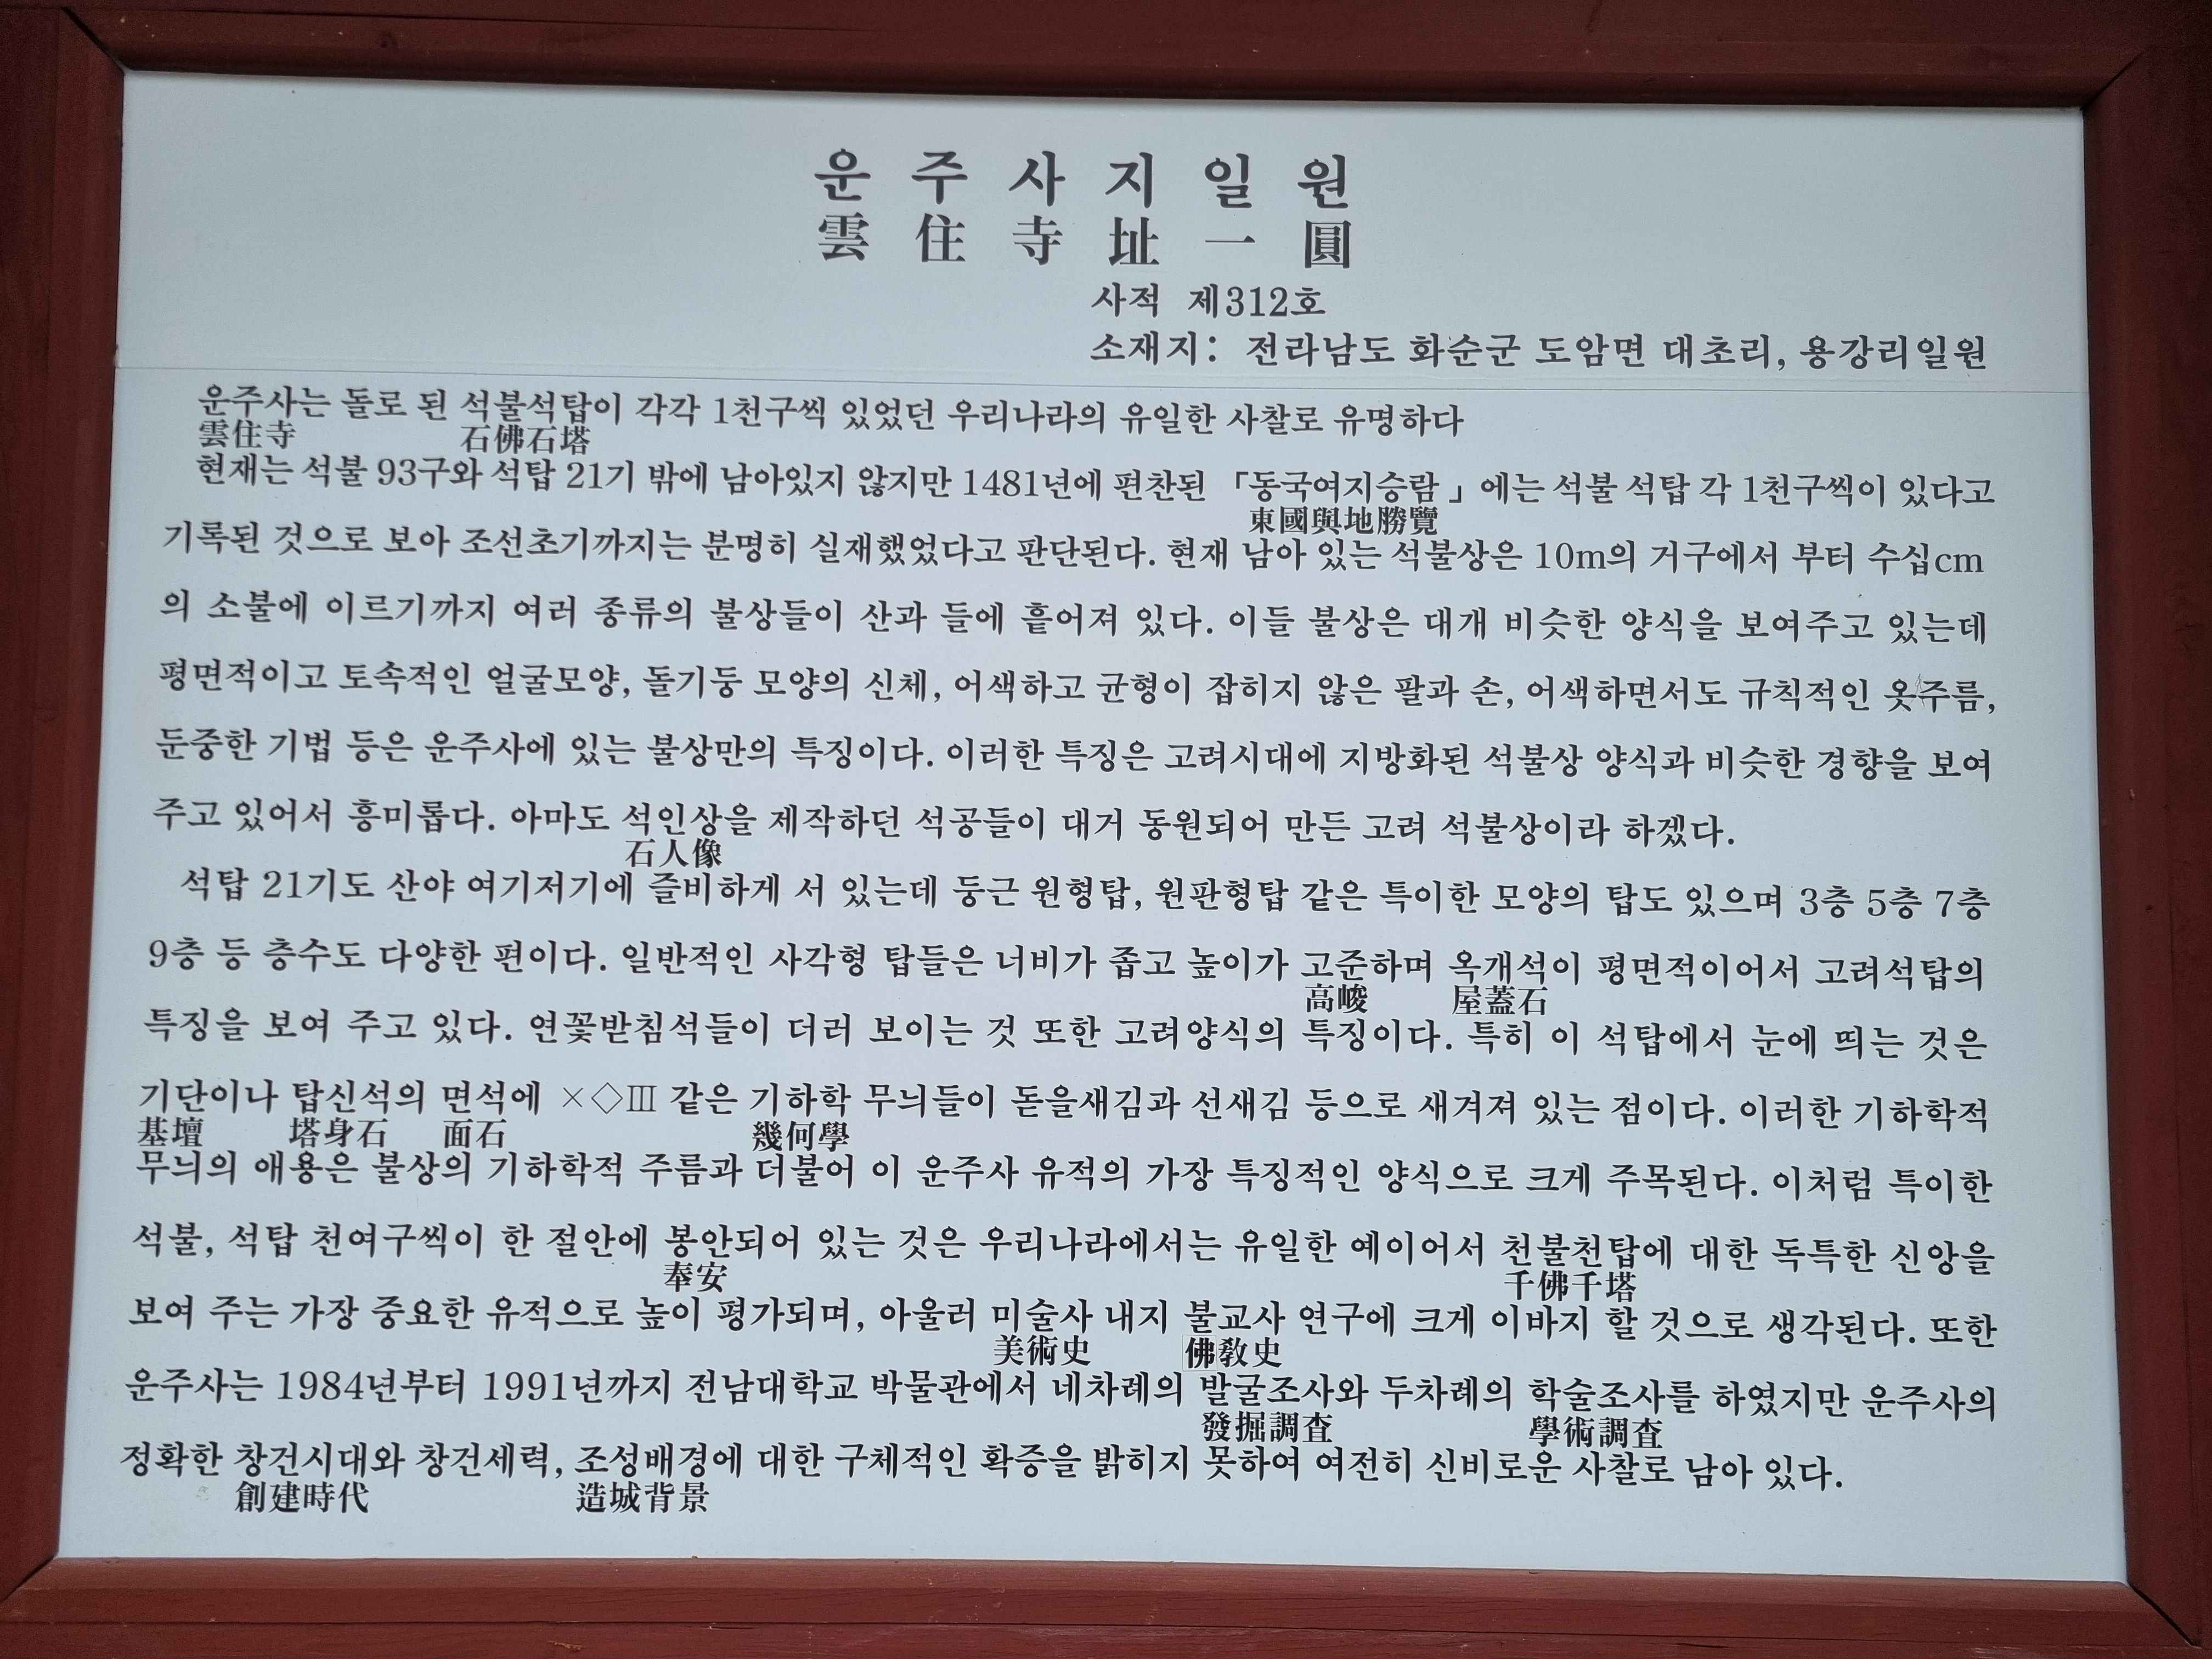 운 주 사 지 일 원
雲 住 寺 址 一 圓
사적 제312호
소재지: 전라남도 화순군 도암면 대초리, 용강리일원
운주사는 돌로 된 석불석탑이 각각 1천구씩 있었던 우리나라의 유일한 사찰로 유명하다
雲住寺 石佛石塔
현재는 석불 93구와 석탑 21기 밖에 남아있지 않지만 1481년에 편찬된 「동국여지승람」에는 석불 석탑 각 1천구씩이 있다고
東國與地勝覽
기록된 것으로 보아 조선초기까지는 분명히 실재했었다고 판단된다. 현재 남아 있는 석불상은 10m의 거구에서 부터 수십cm
의 소불에 이르기까지 여러 종류의 불상들이 산과 들에 흩어져 있다. 이들 불상은 대개 비슷한 양식을 보여주고 있는데
평면적이고 토속적인 얼굴모양, 돌기둥 모양의 신체, 어색하고 균형이 잡히지 않은 팔과 손, 어색하면서도 규칙적인 옷주름,
둔중한 기법 등은 운주사에 있는 불상만의 특징이다. 이러한 특징은 고려시대에 지방화된 석불상 양식과 비슷한 경향을 보여
주고 있어서 흥미롭다. 아마도 석인상을 제작하던 석공들이 대거 동원되어 만든 고려 석불상이라 하겠다.
石人像
석탑 21기도 산야 여기저기에 즐비하게 서 있는데 둥근 원형탑, 원판형탑 같은 특이한 모양의 탑도 있으며 3층 5층 7층
9층 등 층수도 다양한 편이다. 일반적인 사각형 탑들은 너비가 좁고 높이가 고준하며 옥개석이 평면적이어서 고려석탑의
高峻 屋蓋石
특징을 보여 주고 있다. 연꽃받침석들이 더러 보이는 것 또한 고려양식의 특징이다. 특히 이 석탑에서 눈에 띄는 것은
기단이나 탑신석의 면석에 ×◇Ⅲ 같은 기하학 무늬들이 돋을새김과 선새김 등으로 새겨져 있는 점이다. 이러한 기하학적
基壇 塔身石 面石 幾何學
무늬의 애용은 불상의 기하학적 주름과 더불어 이 운주사 유적의 가장 특징적인 양식으로 크게 주목된다. 이처럼 특이한
석불, 석탑 천여구씩이 한 절안에 봉안되어 있는 것은 우리나라에서는 유일한 예이어서 천불천탑에 대한 독특한 신앙을
奉安 千佛千塔
보여 주는 가장 중요한 유적으로 높이 평가되며, 아울러 미술사 내지 불교사 연구에 크게 이바지 할 것으로 생각된다. 또한
美術史 佛敎史
운주사는 1984년부터 1991년까지 전남대학교 박물관에서 네차례의 발굴조사와 두차례의 학술조사를 하였지만 운주사의
發掘調査 學術調査
정확한 창건시대와 창건세력, 조성배경에 대한 구체적인 확증을 밝히지 못하여 여전히 신비로운 사찰로 남아 있다.
創建時代 造城背景